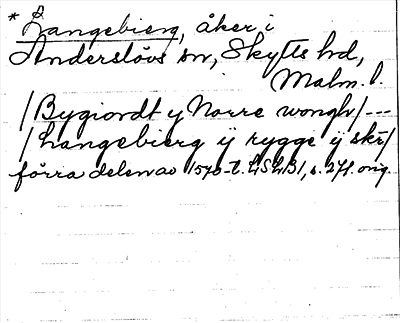 * Langebierg, åker i
Anderslövs sn, Skytts hd,
Malm. l.
/Bygiordt y Norre wongh/---
/Langebierg ij rygge ij skr/
förra delen av 1570-t. LSLB1, s. 271. orig.